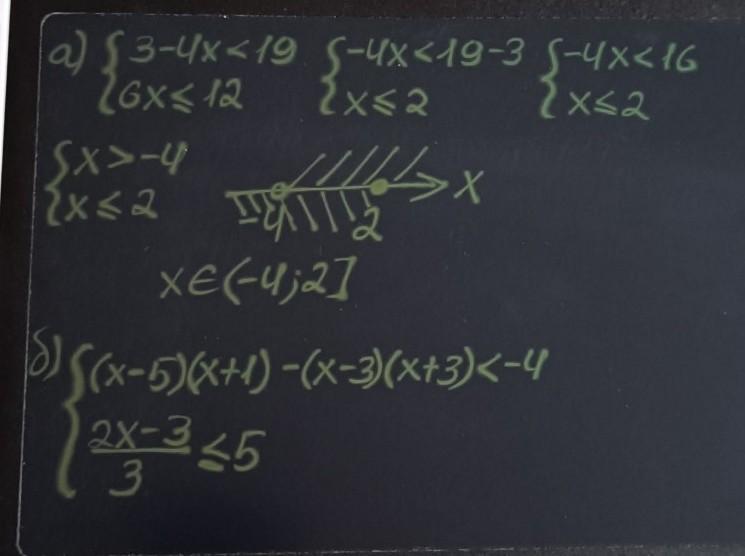 а) {3-4x<19 {-4x<19-3 {-4x<16
{6x≤12 {x≤2 {x≤2
{x>-4
{x≤2 -4 2 x
x∈(-4;2]
б) {(x-5)(x+1)-(x-3)(x+3)<-4
{(2x-3)/3≤5